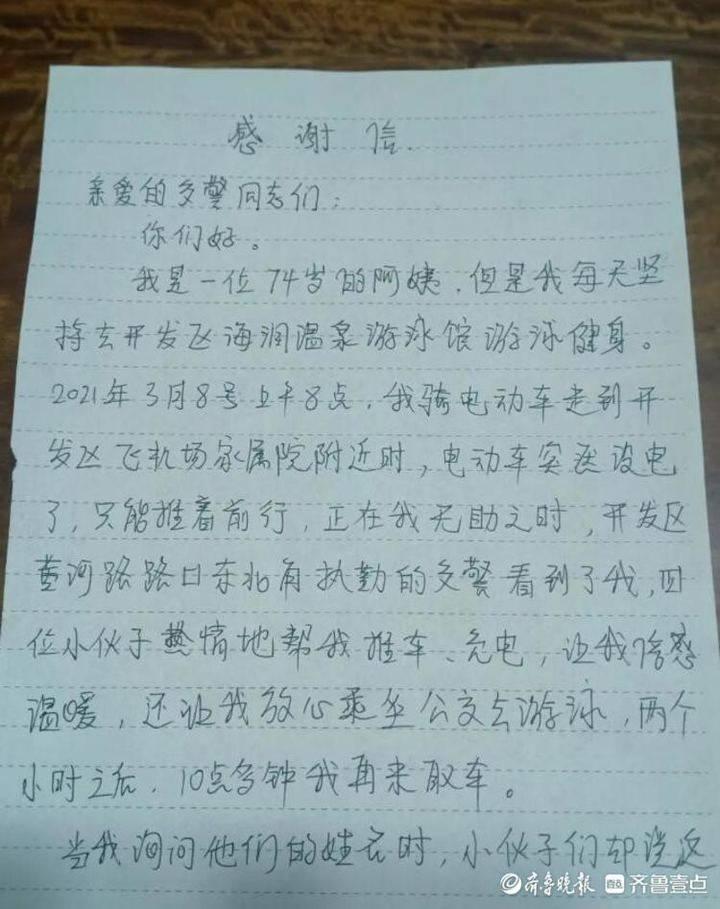 感谢信.
亲爱的交警同志们:
你们好。
我是一位74岁的阿姨,但是我每天坚
持去开发区海润温泉游泳馆游泳健身。
2021年3月8号上午8点,我骑电动车走到开
发区飞机场家属院附近时,电动车突然没电
了,只能推着前行,正在我无助之时,开发区
黄河路路口东北角执勤的交警看到了我,四
位小伙子热情地帮我推车、充电,让我倍感
温暖,还让我放心乘坐公交去游泳,两个
小时之后,10点多钟我再来取车。
当我询问他们的姓名时,小伙子们却说这
齐鲁晚报 齐鲁壹点